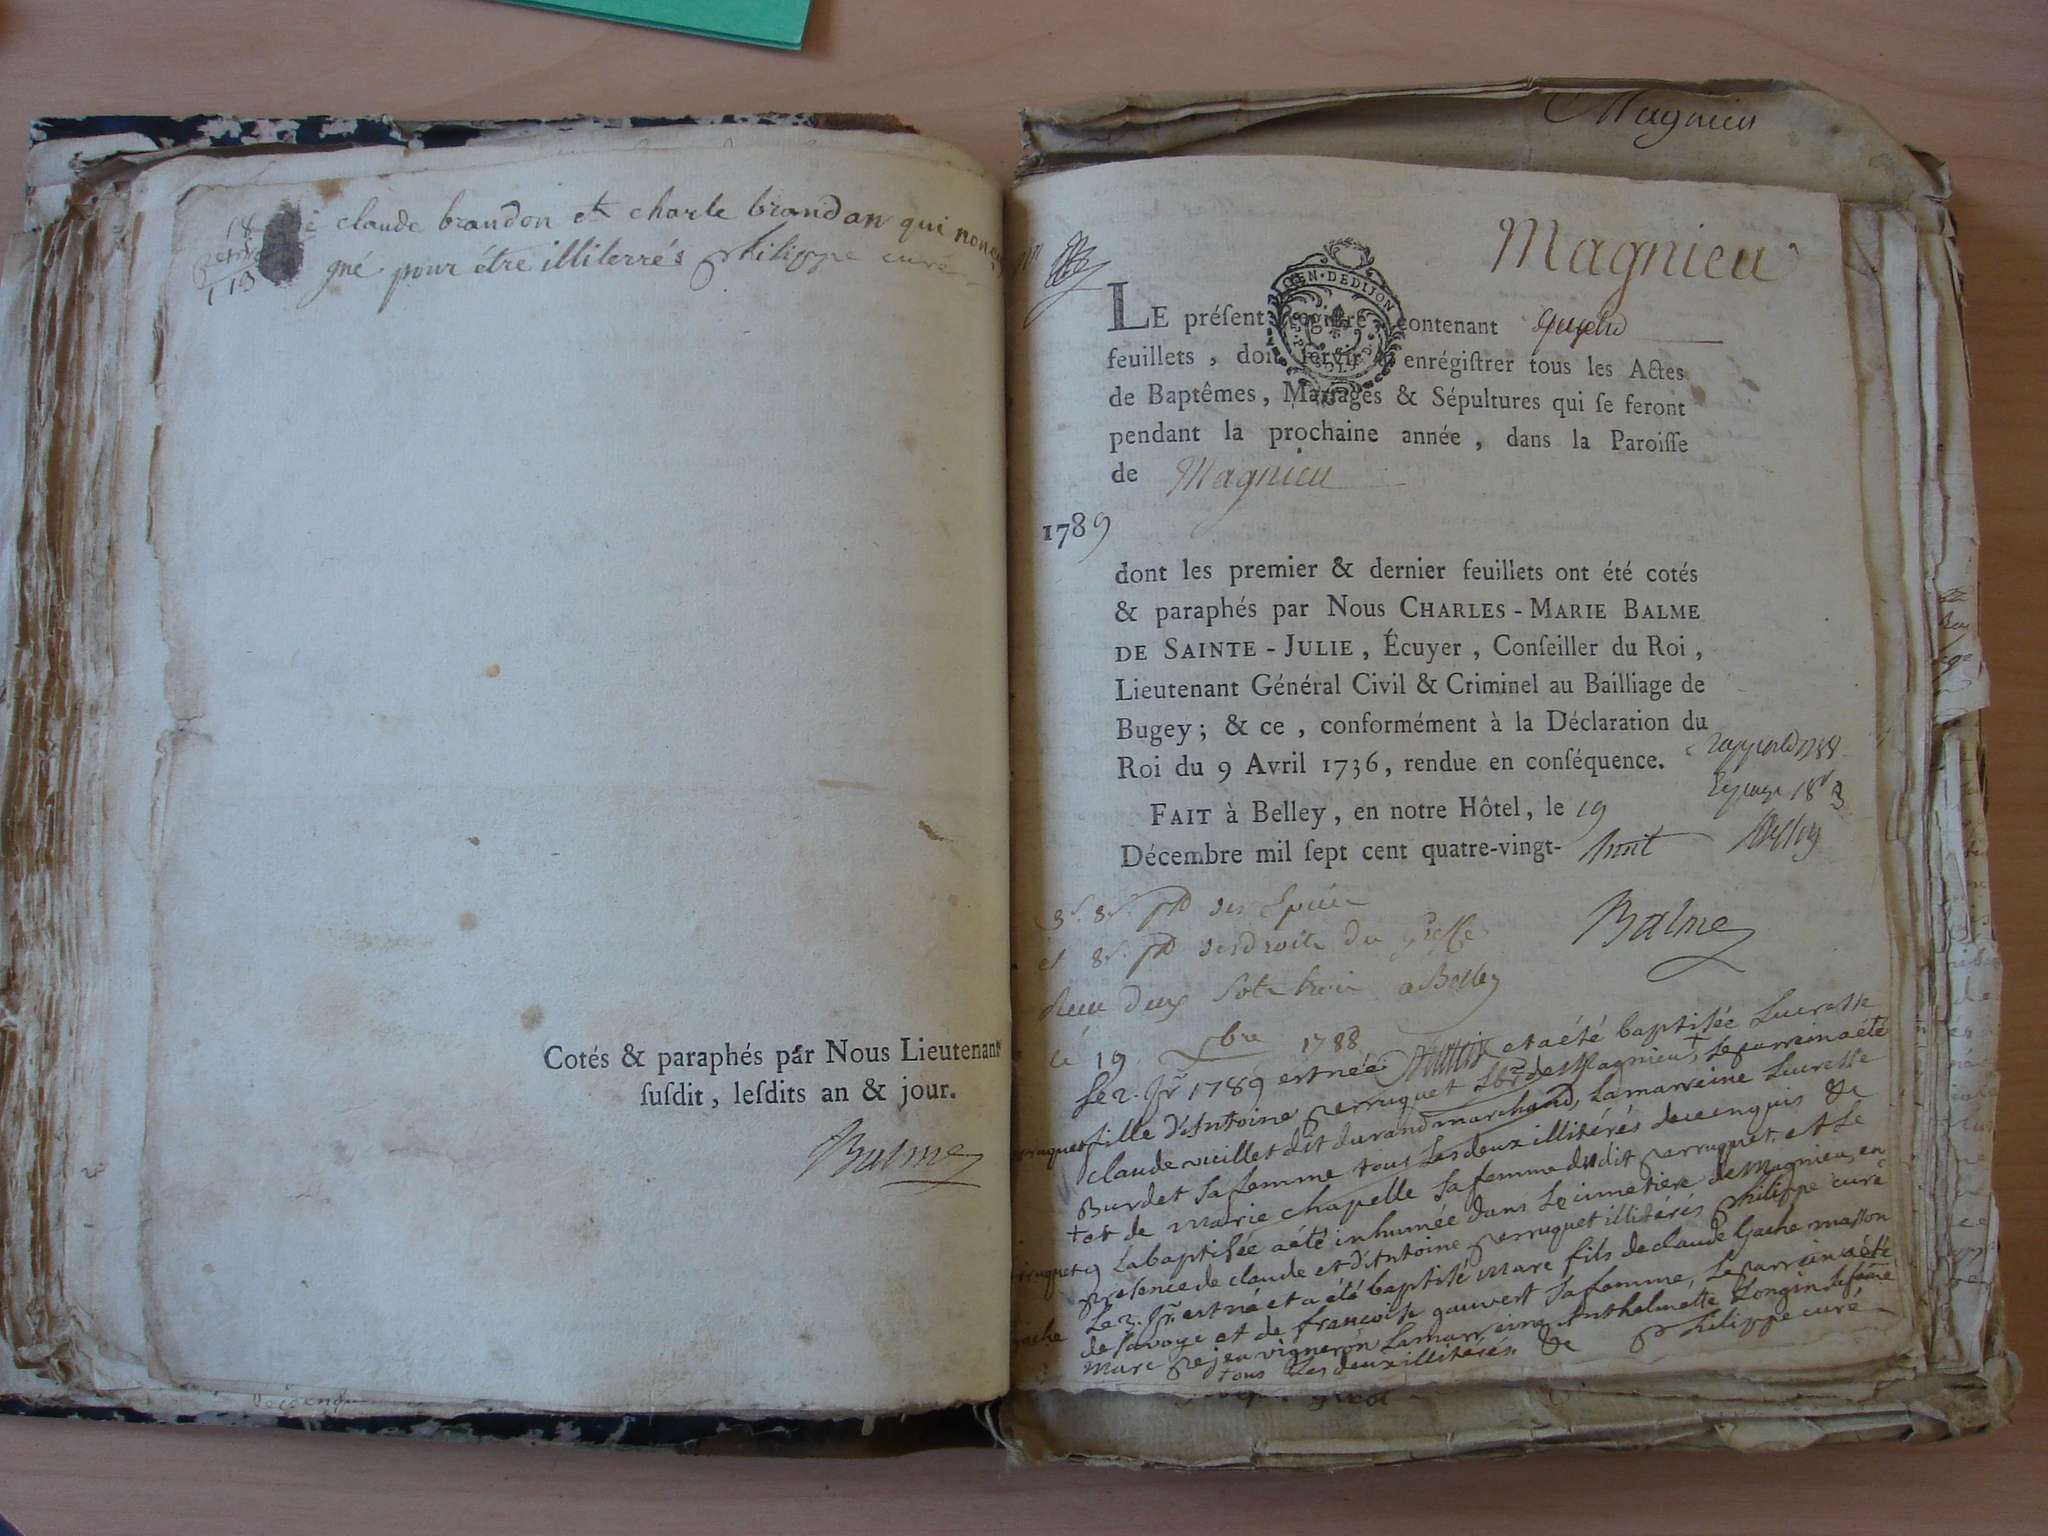 claude brandon et charle brandon qui nont
gné pour étre illiterrés philippe curé
Cotés & paraphés par Nous Lieutenant
ſuſdit, leſdits an & jour.
Balme
Magnieu
Magnieu
GEN·DEDIJON
LE préſent regiſtre contenant
feuillets, doit ſervir à enrégiſtrer tous les Actes
de Baptêmes, Mariages & Sépultures qui ſe feront
pendant la prochaine année, dans la Paroiſſe
de Magnieu
1789
dont les premier & dernier feuillets ont été cotés
& paraphés par Nous CHARLES-MARIE BALME
DE SAINTE-JULIE, Écuyer, Conſeiller du Roi,
Lieutenant Général Civil & Criminel au Bailliage de
Bugey; & ce, conformément à la Déclaration du
Roi du 9 Avril 1736, rendue en conſéquence.
FAIT à Belley, en notre Hôtel, le 19
Décembre mil ſept cent quatre-vingt-huit
Balme
et 8s. pd des droits du greffe
a Belley
le 19 xbre 1788
Le 2. Jr. 1789 est née et a été baptisée Lucresse
fille d'Antoine perruquet de Magnieu, Le parrein a été
claude vieillet dit durand marchand, La marreine Lucresse
Burdet sa femme tous Les deux illitérés de ce enquis
+ et de marie chapelle sa femme dudit perruquet. et Le
La baptisée a été inhumée dans Le cimetiere de Magnieu, en
presence de claude et d'Antoine perruquet illitérés philippe curé
Le 3. Jr. est né et a été baptisé marc fils de claude Gache masson
de savoye et de francoise gauvert sa femme, Le parrein a été
marc pejeu vigneron La marreine Anthelmette Longin sa femme
tous Les deux illitérés. philippe curé